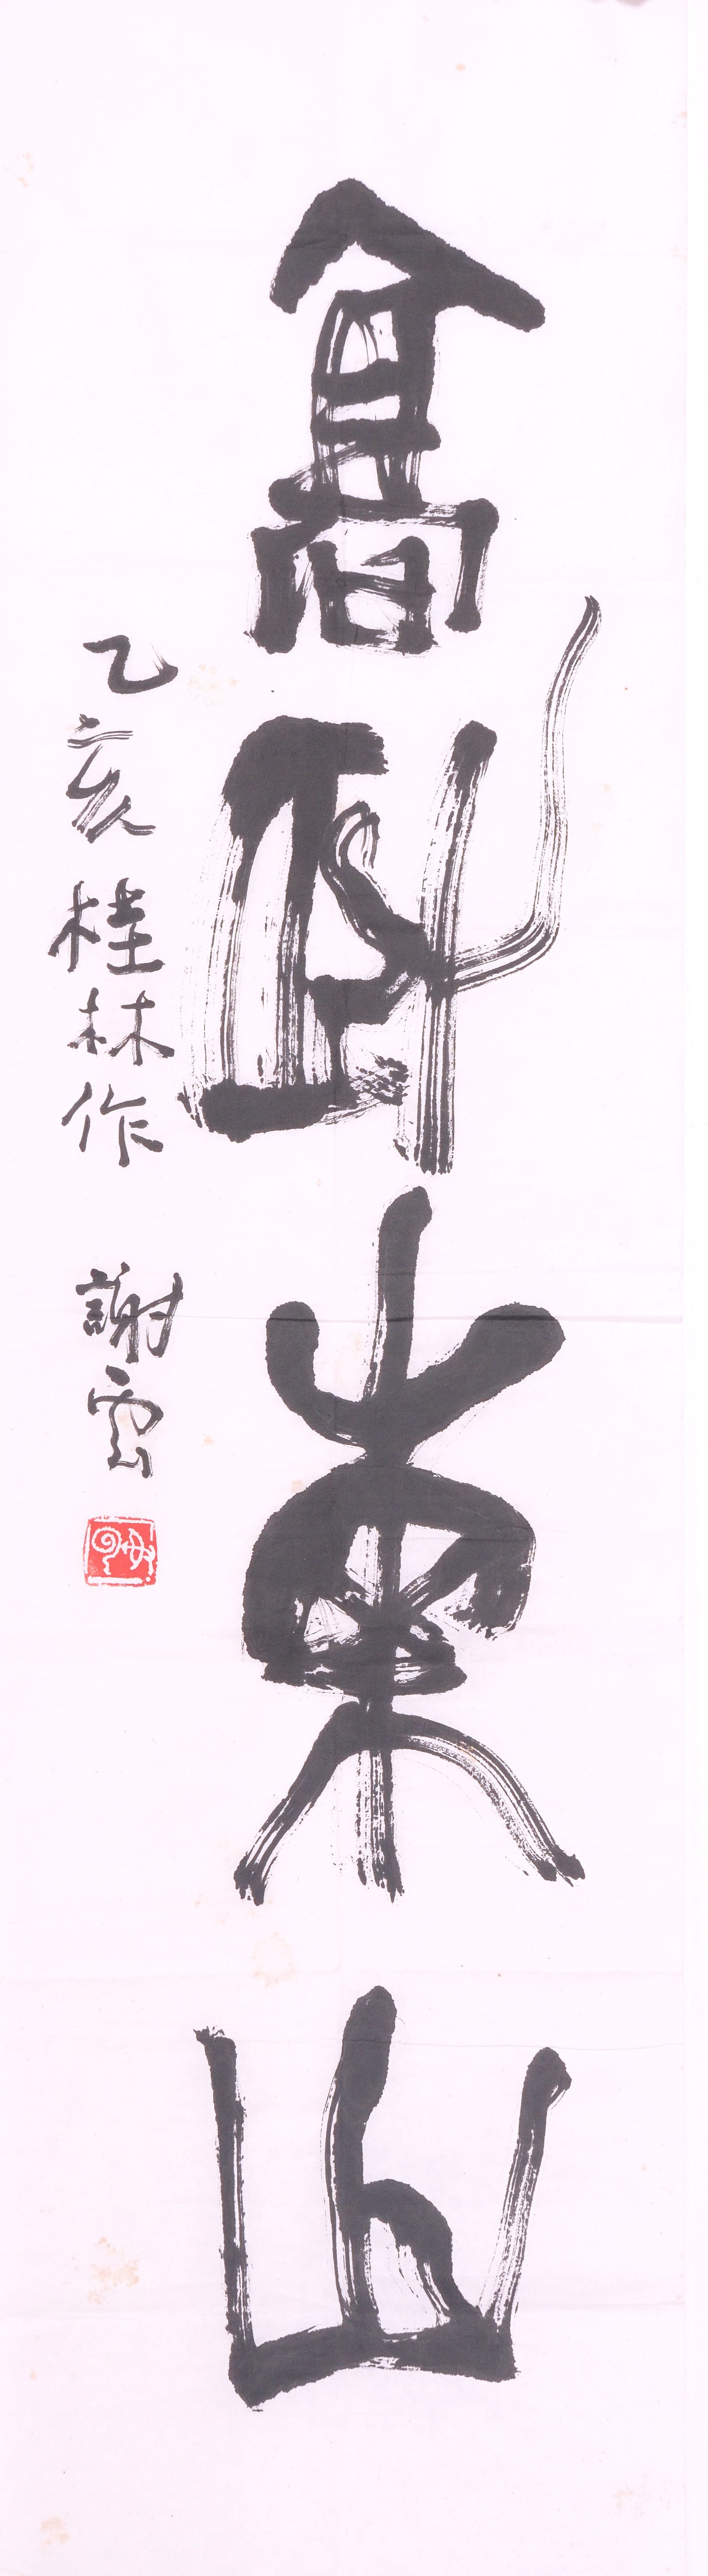 高臥東山
乙亥桂林作 謝雲